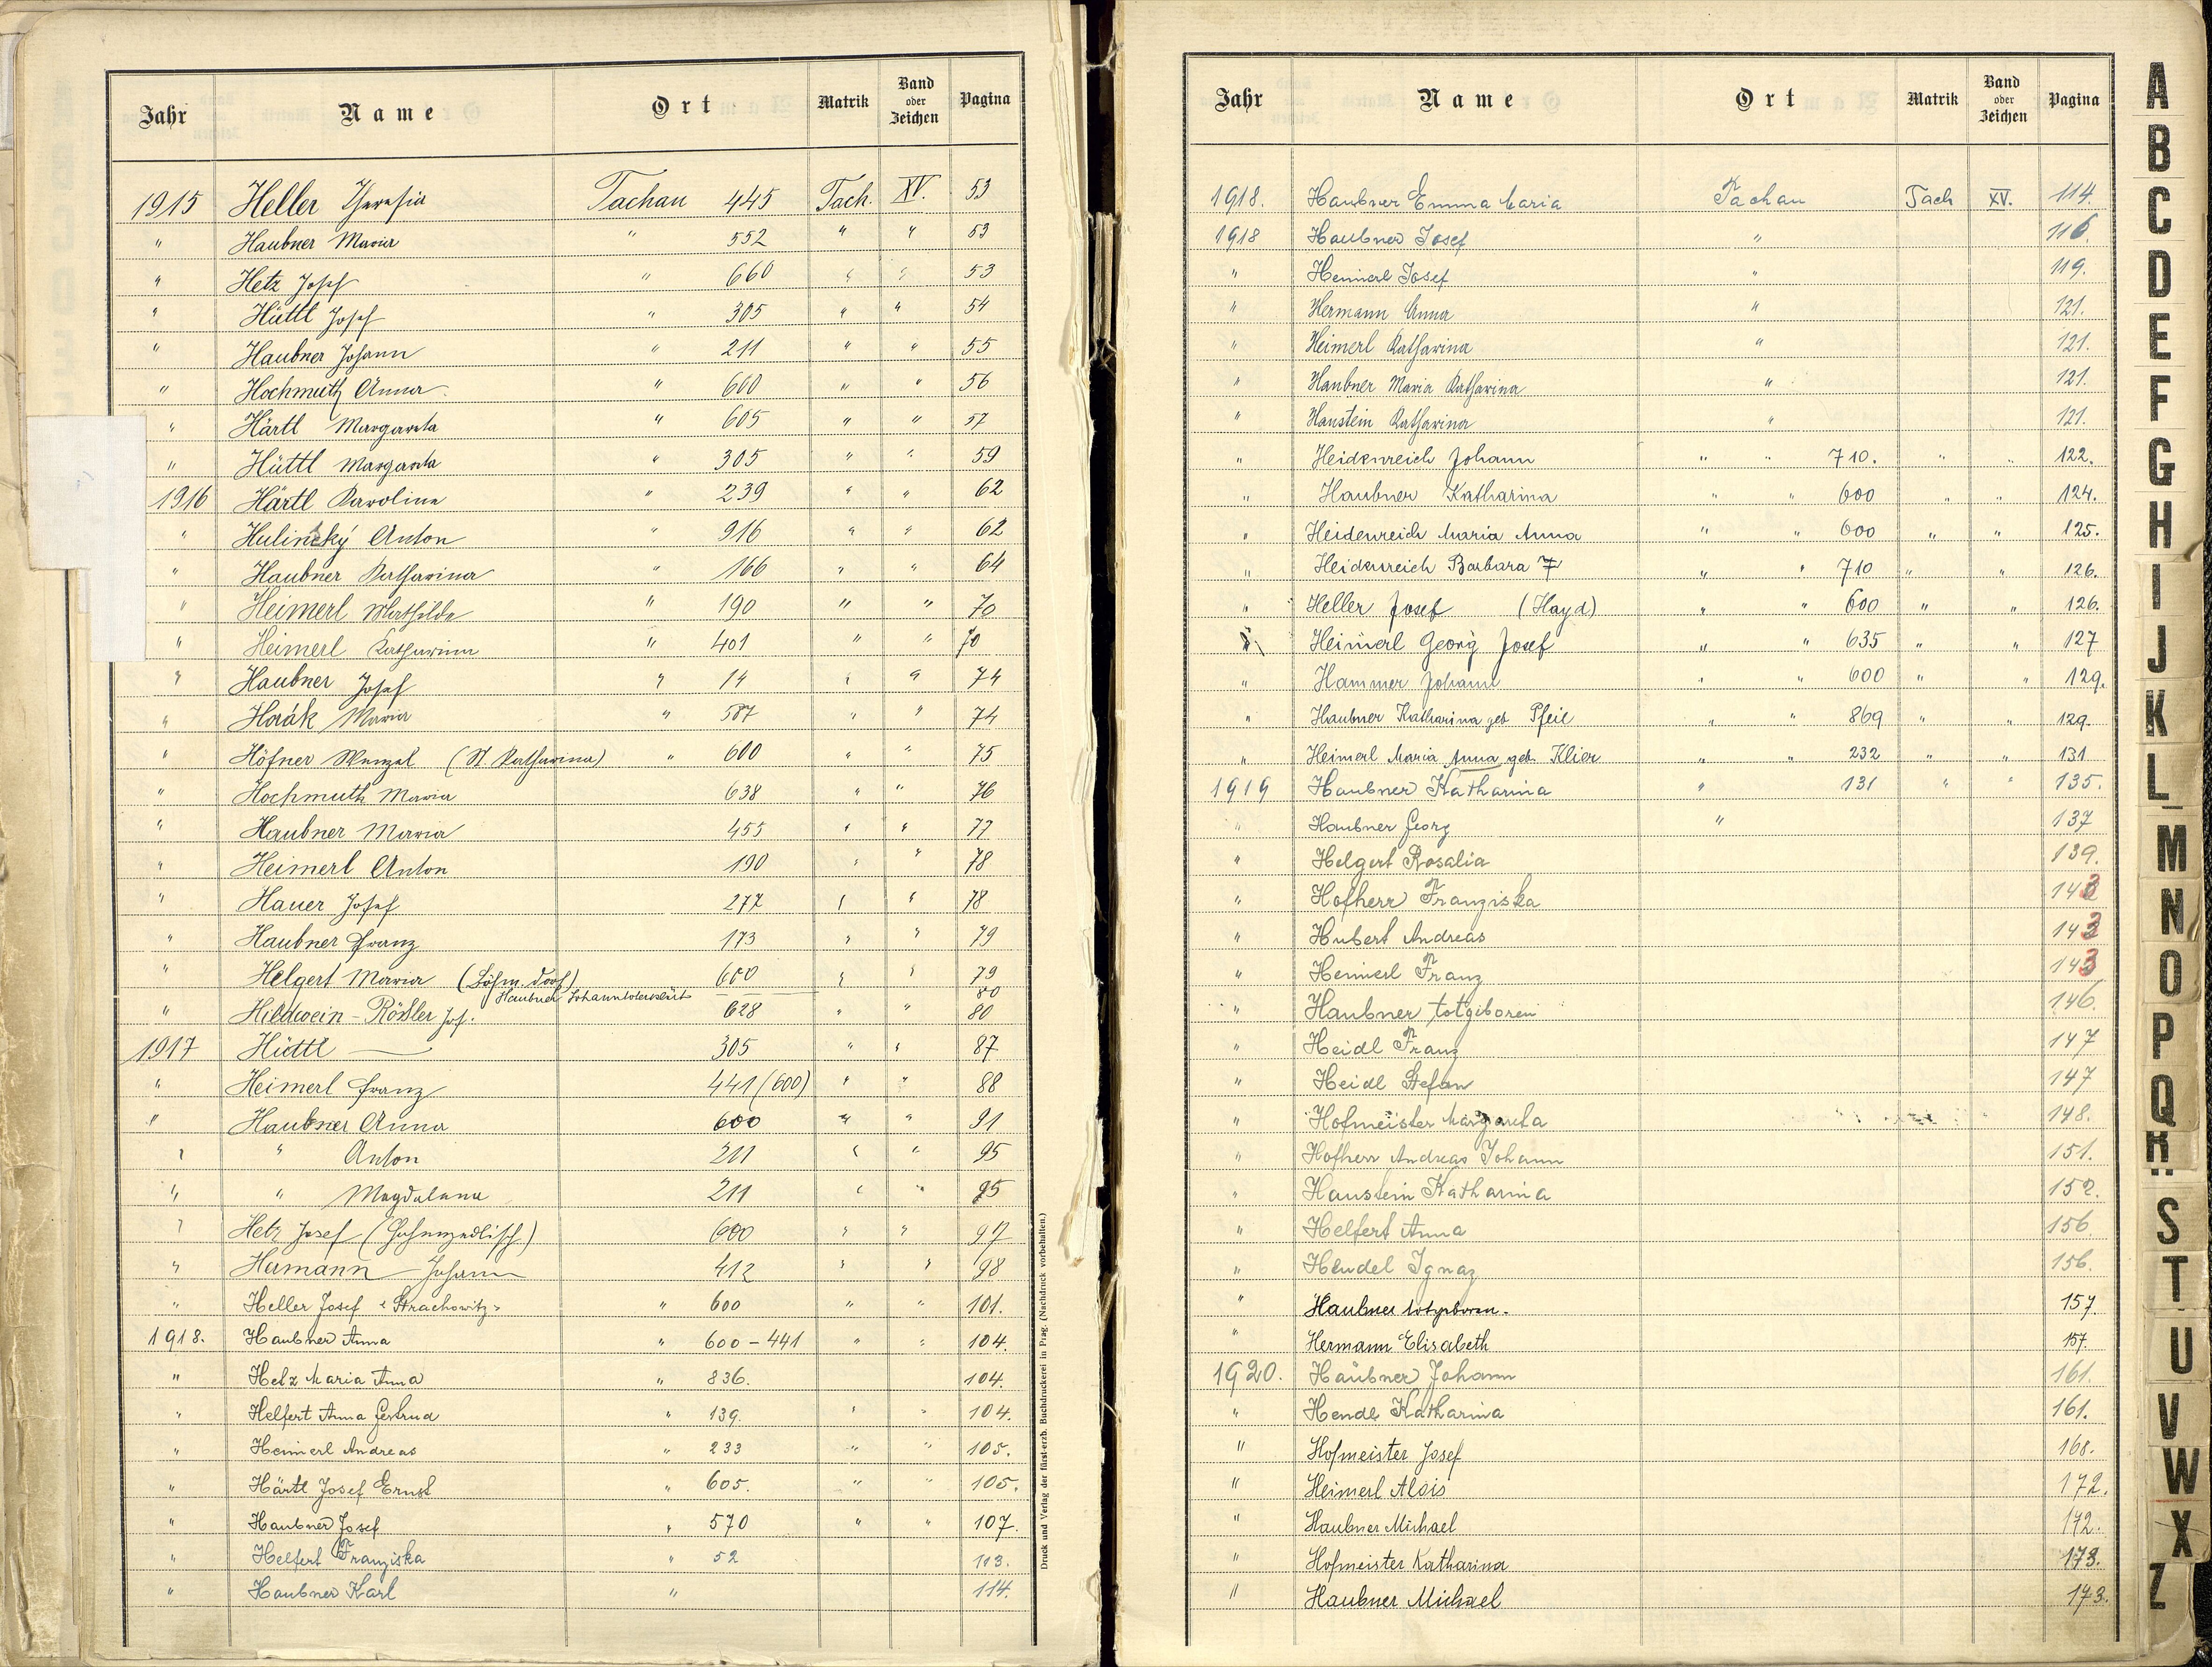 Jahr Name Ort Matrik Band oder Zeichen Pagina
1915 Heller Theresia Tachau 445 Tach. XV. 53
" Haubner Maria " 552 " " 53
" Hetz Josef " 660 " " 53
" Hüttl Josef " 305 " " 54
" Haubner Johann " 211 " " 55
" Hochmuth Anna " 600 " " 56
" Härtl Margareta " 605 " " 57
" Hüttl Margareta " 305 " " 59
1916 Härtl Karoline " 239 " " 62
" Hulinský Anton " 916 " " 62
" Haubner Katharina " 166 " " 64
" Heimerl Mathilde " 190 " " 70
" Heimerl Katharina " 401 " " 70
" Haubner Josef " 14 " " 74
" Horák Maria " 587 " " 74
" Höfner Wenzel (St Katharina) " 600 " " 75
" Hochmuth Maria 638 " " 76
" Haubner Maria 455 " " 77
" Heimerl Anton 190 " " 78
" Hauer Josef 277 " " 78
" Haubner Franz 173 " " 79
" Helgert Maria (Böhm. Dorf) 600 " " 79
Haubner Johann 80
" Hildwein - Rößler Jos. 628 " " 80
1917 Hüttl — 305 " " 87
" Heimerl Franz 441 (600) " " 88
" Haubner Anna 600 " " 91
" " Anton 211 " " 95
" " Magdalena 211 " " 95
" Hetz Josef 600 " " 97
" Hermann Johann 412 " " 98
" Heller Josef "Strachowitz" " 600 " " 101.
1918. Haubner Anna " 600 - 441 " " 104.
" Hetz Maria Anna " 836. 104.
" Helfert Anna Gertrud " 139. " " 104.
" Heimerl Andreas " 233 " " 105.
" Härtl Josef Ernst " 605. " " 105.
" Haubner Josef " 570 " " 107.
" Helfert Franziska " 52 113.
" Haubner Karl " 114.
Druck und Verlag der fürst-erzb. Buchdruckerei in Prag. (Nachdruck vorbehalten.)
Jahr Name Ort Matrik Band oder Zeichen Pagina
1918. Haubner Emma Maria Tachau Tach XV. 114.
1918 Haubner Josef " 116.
" Heimerl Josef " 119.
" Hermann Anna " 121.
" Heimerl Katharina " 121.
" Haubner Maria Katharina " 121.
" Haustein Katharina " 121.
" Heidenreich Johann " " 710. " " 122.
" Haubner Katharina " " 600 " " 124.
" Heidenreich Maria Anna " " 600 " " 125.
" Heidenreich Barbara " " 710 " " 126.
" Heller Josef (Hayd) " " 600 " " 126.
" Heimerl Georg Josef " " 635 " " 127
" Hammer Johann " " 600 " " 129.
" Haubner Katharina geb Pfeil " " 869 " " 129.
" Heimerl Maria Anna geb. Klier " " 232 " " 131
1919 Haubner Katharina " 131 " " 135.
" Haubner Georg " 137
" Helgert Rosalia 139.
" Hofherr Franziska 143
" Hubert Andreas 143
" Heimerl Franz 143
" Haubner totgiboren 146.
" Heidl Franz 147
" Heidl Stefan 147
" Hofmeister Margareta 148.
" Hofherr Andreas Johann 151.
" Haustein Katharina 152.
" Helfert Anna 156.
" Hendel Ignaz 156.
" Haubner totgeboren. 157
" Hermann Elisabeth 157.
1920. Haubner Johann 161.
" Hendl Katharina 161.
" Hofmeister Josef 168.
" Heimerl Alois 172.
" Haubner Michael 172.
" Hofmeister Katharina 173.
" Haubner Michael 173.
A
B
C
D
E
F
G
H
I
J
K
L
M
N
O
P
Q
R
S
T
U
V
W
X
Z